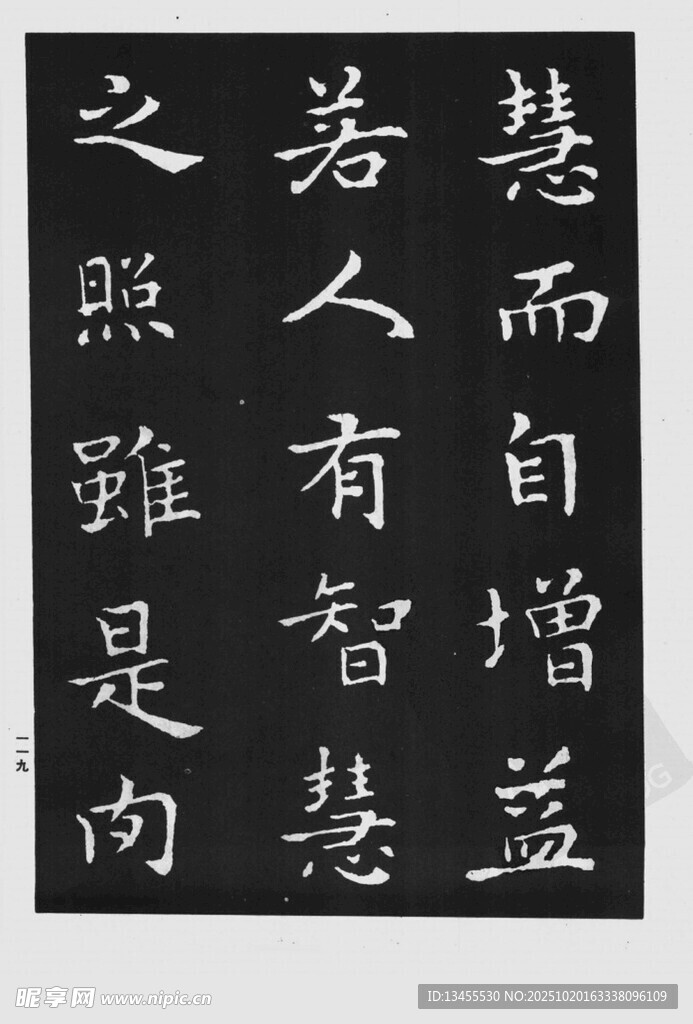 慧而自增益
若人有智慧
之照雖是肉
一一九
昵享网 www.nipic.cn
ID:13455530 NO:20251020163338096109